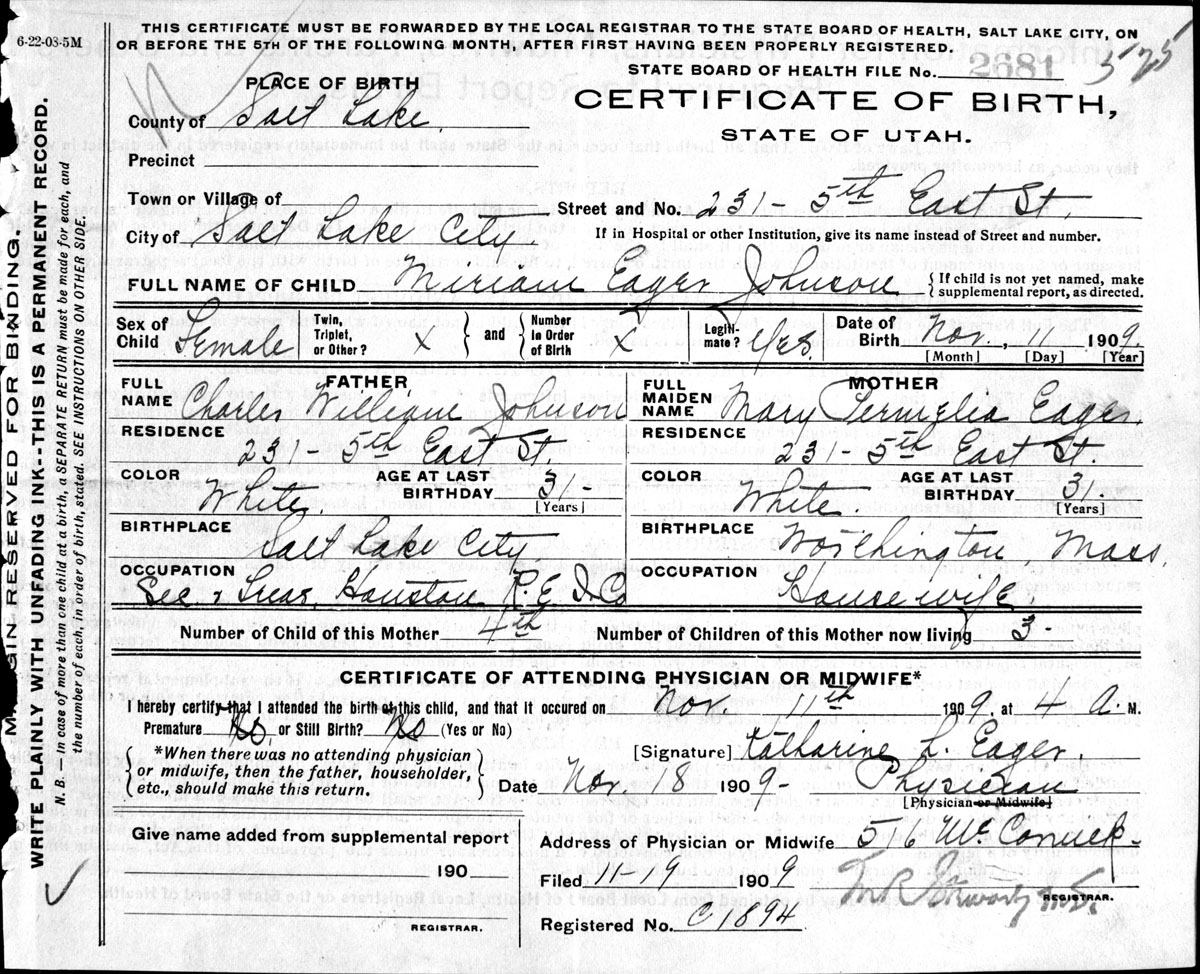 6-22-08-5M
THIS CERTIFICATE MUST BE FORWARDED BY THE LOCAL REGISTRAR TO THE STATE BOARD OF HEALTH, SALT LAKE CITY, ON
OR BEFORE THE 5TH OF THE FOLLOWING MONTH, AFTER FIRST HAVING BEEN PROPERLY REGISTERED.
STATE BOARD OF HEALTH FILE No. 2681 525
PLACE OF BIRTH
CERTIFICATE OF BIRTH,
STATE OF UTAH.
County of Salt Lake.
Precinct
Town or Village of
Street and No. 231 - 5th East St.
City of Salt Lake City
If in Hospital or other Institution, give its name instead of Street and number.
FULL NAME OF CHILD Miriam Eager Johnson { If child is not yet named, make supplemental report, as directed.
Sex of Child Female Twin, Triplet, or Other? X } and { Number in Order of Birth X Legiti- mate? Yes. Date of Birth Nov., 11 1909.
[Month] [Day] [Year]
FATHER
FULL NAME Charles William Johnson
RESIDENCE 231 - 5th East St
COLOR White. AGE AT LAST BIRTHDAY 31 - [Years]
BIRTHPLACE Salt Lake City
OCCUPATION Sec. & Treas. Houston R. E. I. Co
MOTHER
FULL MAIDEN NAME Mary Permelia Eager.
RESIDENCE 231 - 5th East St.
COLOR White. AGE AT LAST BIRTHDAY 31. [Years]
BIRTHPLACE Worthington Mass.
OCCUPATION Housewife.
Number of Child of this Mother 4th Number of Children of this Mother now living 3 -
CERTIFICATE OF ATTENDING PHYSICIAN OR MIDWIFE*
I hereby certify that I attended the birth of this child, and that it occured on Nov. 11th 1909. at 4 A. M.
Premature No. or Still Birth? No (Yes or No)
*When there was no attending physician
or midwife, then the father, householder,
etc., should make this return.
[Signature] Katharine L. Eager,
Date Nov. 18 1909- Physician
[Physician or Midwife]
Give name added from supplemental report
190
REGISTRAR.
Address of Physician or Midwife 516 McCornick -
Filed 11-19 1909
REGISTRAR.
Registered No. C 1894
MARGIN RESERVED FOR BINDING.
WRITE PLAINLY WITH UNFADING INK--THIS IS A PERMANENT RECORD.
N. B. — In case of more than one child at a birth, a SEPARATE RETURN must be made for each, and
the number of each, in order of birth, stated. SEE INSTRUCTIONS ON OTHER SIDE.